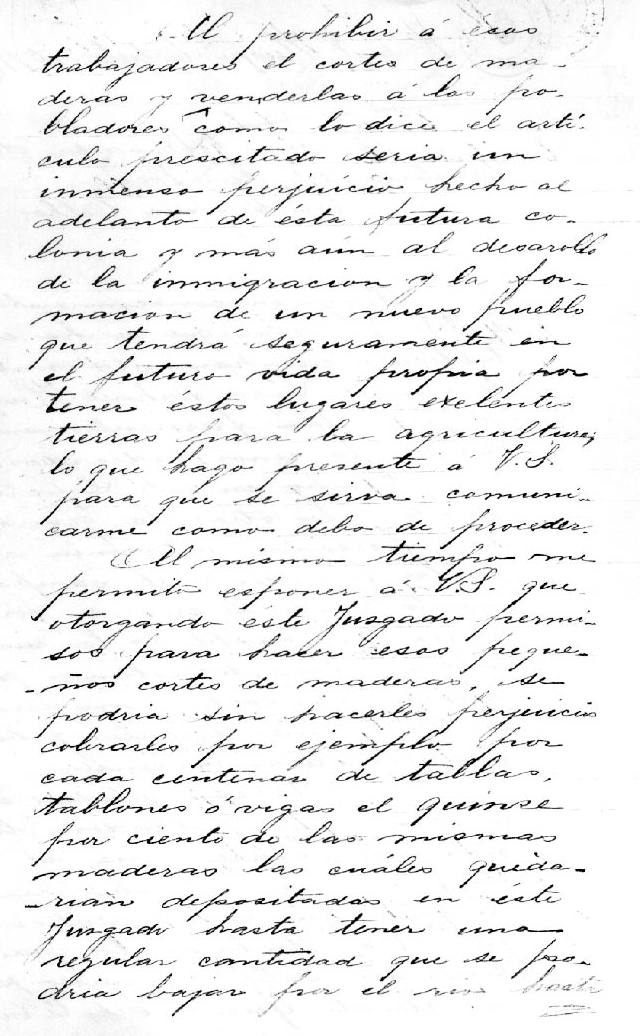 Al prohibir á esos
trabajadores el cortes de ma-
deras y venderlas á los po-
bladores como lo dice el artí-
culo prescitado seria un
inmenso perjuicio hecho al
adelanto de ésta futura co-
lonia y más aún al desarollo
de la inmigracion y la for-
macion de un nuevo pueblo
que tendrá seguramente en
el futuro vida propia por
tener éstos lugares exelentes
tierras para la agricultura;
lo que hago presente á V.S.
para que se sirva comuni-
carme como debo de proceder.
Al mismo tiempo me
permito esponer á V.S. que
otorgando éste Juzgado permi-
sos para hacer esos peque-
-ños cortes de maderas, se
podria sin hacerles perjuicio
cobrarles por ejemplo por
cada centenar de tablas,
tablones ó vigas el quinse
por ciento de las mismas
maderas las cuáles queda-
-rian depositadas en éste
Juzgado hasta tener una
regular cantidad que se po-
dria bajar por el rio hasta